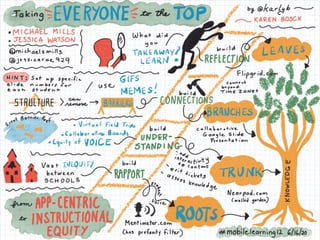 Taking EVERYONE to the TOP
by @karlyb
KAREN BOSCH
• MICHAEL MILLS
• JESSICA WATSON
@michaelsmills
@jessicarae929
What did
you
TAKEAWAY?
LEARN?
build
REFLECTION
LEAVES
Flipgrid.com
connect
beyond
TIME ZONES
HINT: Set up specific
slide numbers for
each student
use
GIFS
MEMES!
STRUCTURE
BARRIERS
build
CONNECTIONS
BRANCHES
• Virtual Field Trips
• Collaborative Boards
• Equity of VOICE
build
UNDER-
STANDING
collaborative
Google Slide
Presentation
interactivity
w/ content
• exit tickets
• assess knowledge
Vast INEQUITY
between
SCHOOLS
build
RAPPORT
TRUNK
Nearpod.com
(walled garden)
KNOWLEDGE
from APP-CENTRIC
to INSTRUCTIONAL
EQUITY
Mentimeter.com
(has profanity filter)
ROOTS
#mobilelearning12 6/16/20